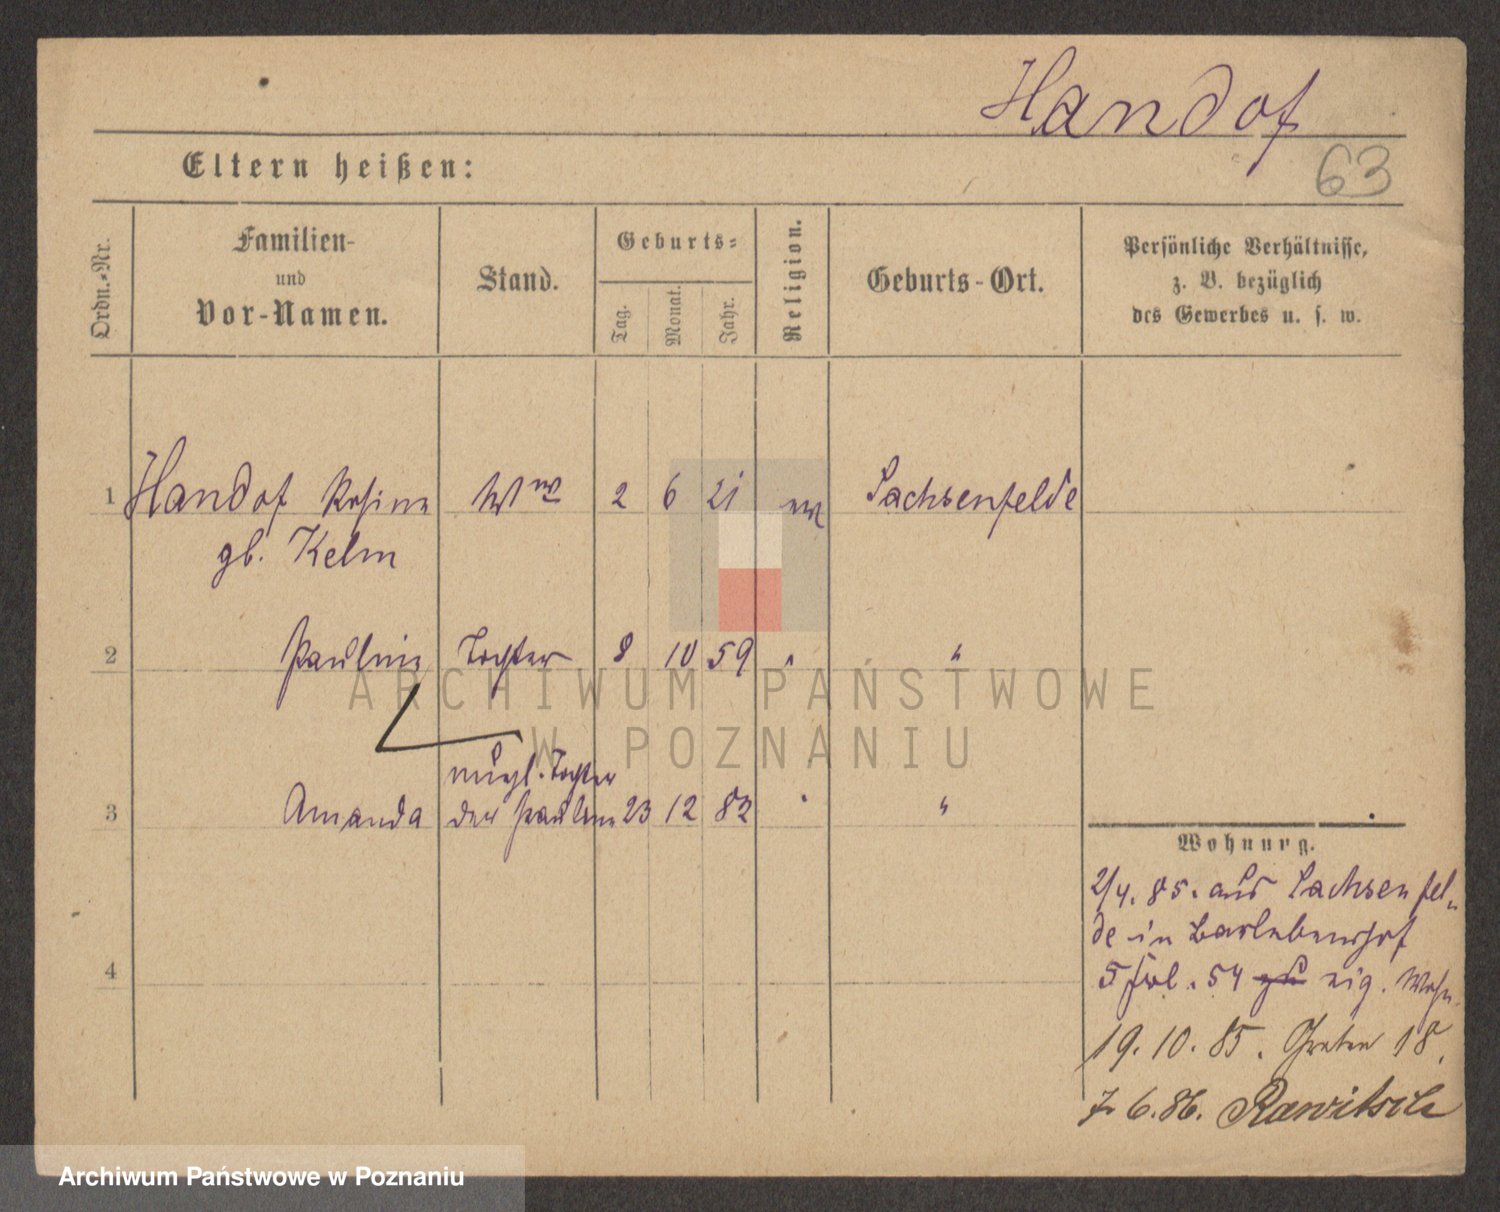 Handof
63
Eltern heißen:
Ordn.-Nr.
Familien-
und
Vor-Namen.
Stand.
Geburts-
Tag.
Monat.
Jahr.
Religion.
Geburts-Ort.
Persönliche Verhältnisse,
z. B. bezüglich
des Gewerbes u. s. w.
1 Handof Rosine Ww 2 6 21 ev Sachsenfelde
gb. Kelm
2 Pauline Tochter 8 10 59 " "
unehl. Tochter
3 Amanda der Pauline 23 12 82 " "
4
Wohnung.
2/4. 85. aus Sachsenfel-
de in Bartelsmshof
54 zu eig. Wohn.
19. 10. 85. Graben 18.
7. 6. 86. Rawitsch
ARCHIWUM PAŃSTWOWE
W POZNANIU
Archiwum Państwowe w Poznaniu